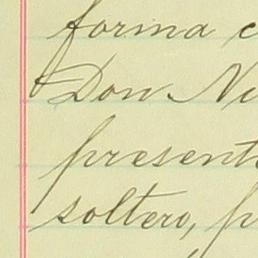 forma c
Don Ni
present
soltero, p